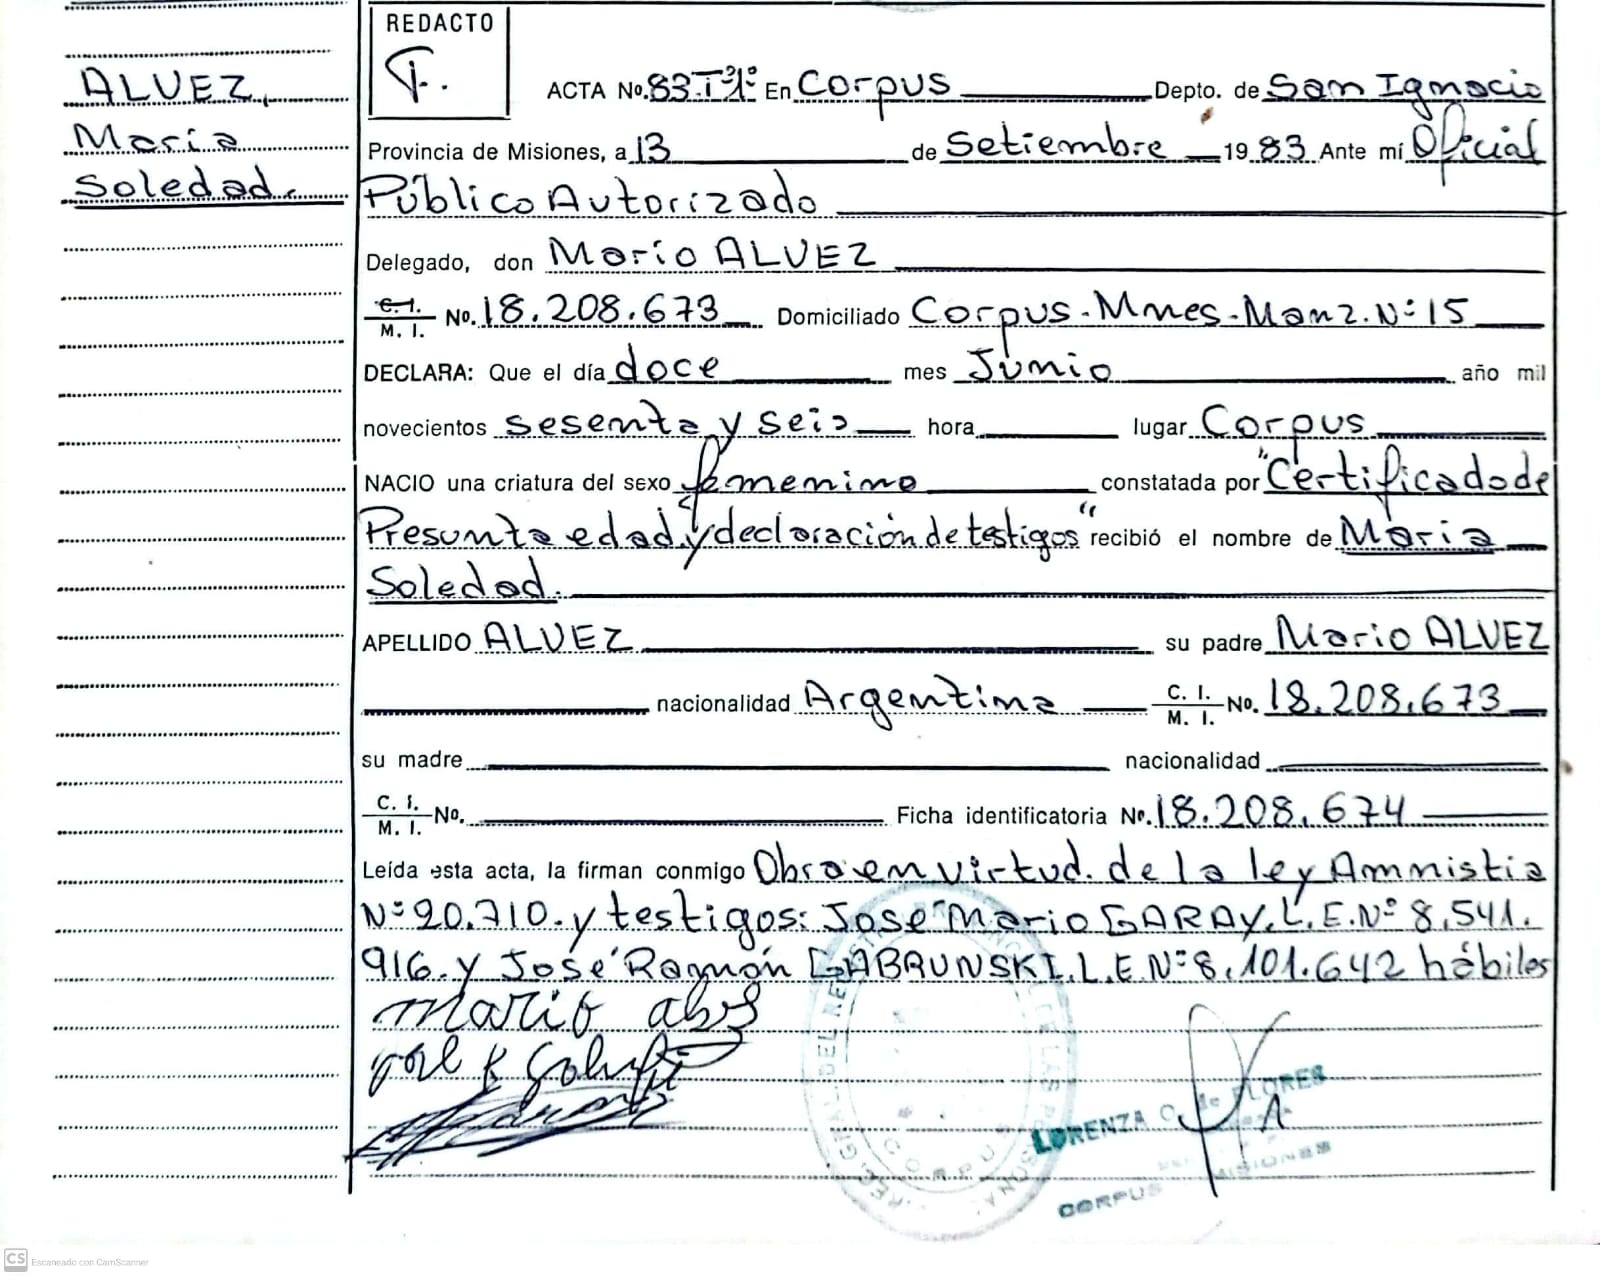 REDACTO
ALVEZ,
Maria
Soledad.
ACTA No. 83.Tº1º En Corpus Depto. de San Ignacio
Provincia de Misiones, a 13 de Setiembre 1983 Ante mí Oficial
Público Autorizado
Delegado, don Mario ALVEZ
C. I. / M. I. No. 18.208.673 Domiciliado Corpus.Mnes.Manz.Nº15
DECLARA: Que el día doce mes Junio año mil
novecientos sesenta y seis hora lugar Corpus
NACIO una criatura del sexo femenino constatada por "Certificado de
Presunta edad y declaración de testigos" recibió el nombre de Maria
Soledad.
APELLIDO ALVEZ su padre Mario ALVEZ
nacionalidad Argentina C. I. / M. I. No. 18.208.673
su madre nacionalidad
C. I. / M. I. No. Ficha identificatoria No. 18.208.674
Leída esta acta, la firman conmigo Obra en virtud. de la ley Amnistia
Nº20.710. y testigos: José Mario GARAY.L.E.Nº 8.541.
916. y José Ramón GABRUNSKI.L.E Nº8.101.642 hábiles
Mario
LORENZA C. de FLORES
CORPUS MISIONES
CS Escaneado con CamScanner